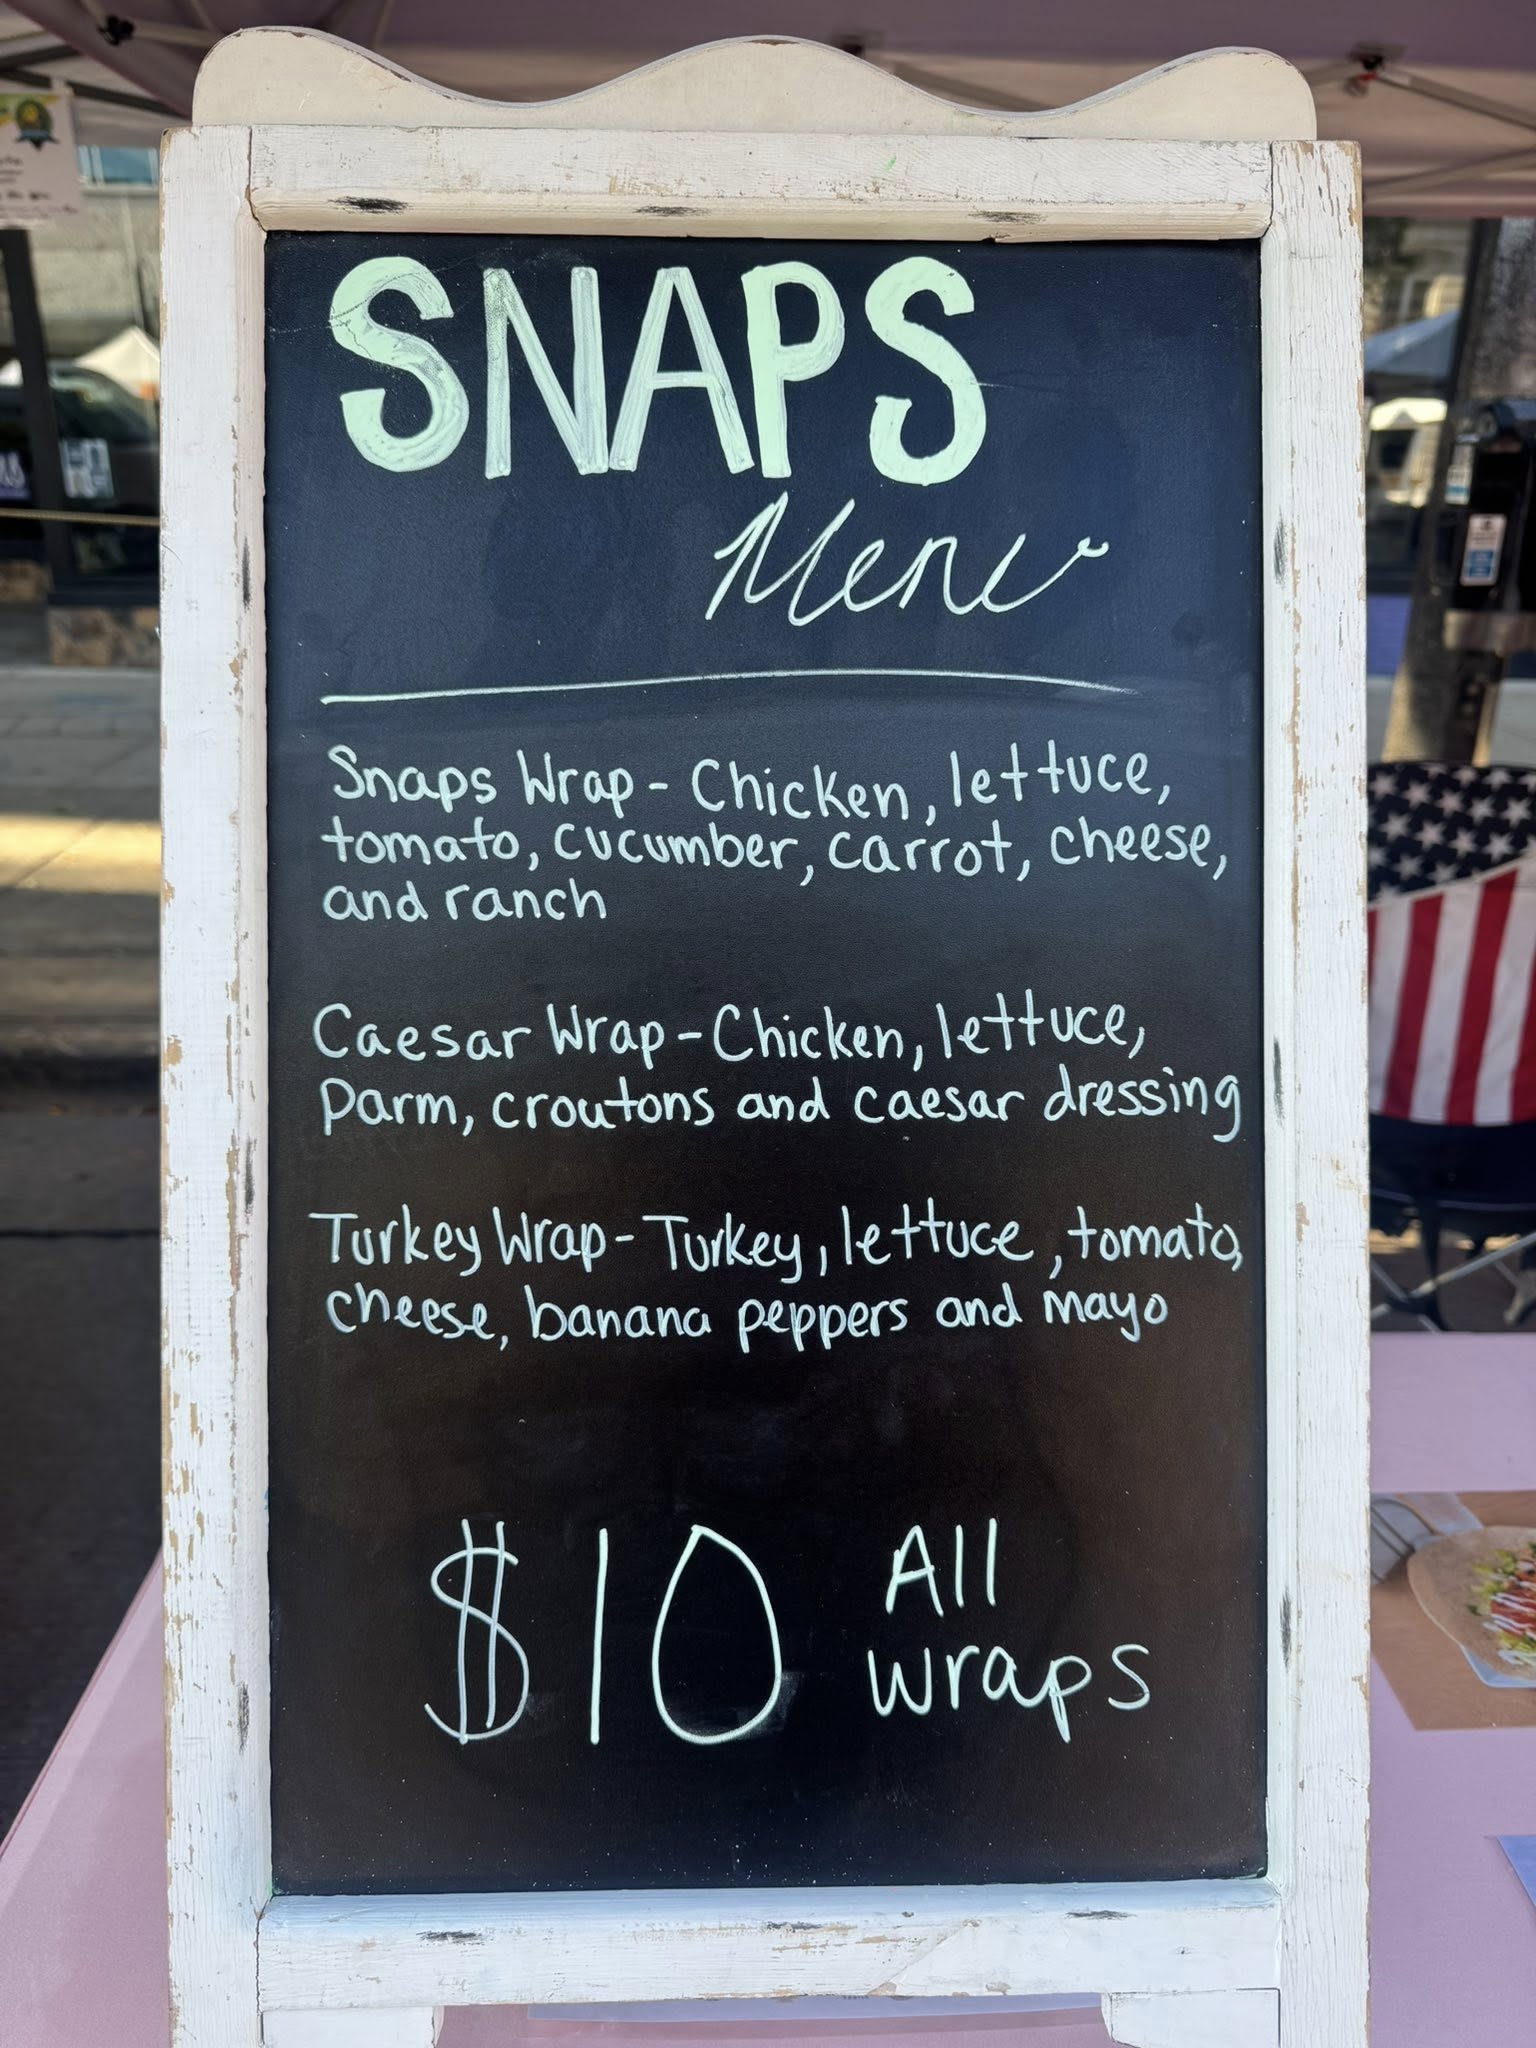 SNAPS
Menu
Snaps Wrap - Chicken, lettuce,
tomato, cucumber, carrot, cheese,
and ranch
Caesar Wrap - Chicken, lettuce,
Parm, croutons and caesar dressing
Turkey Wrap - Turkey, lettuce, tomato,
cheese, banana peppers and mayo
$10 All
wraps